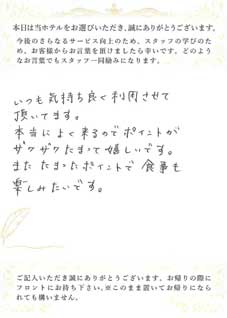 本日は当ホテルをお選びいただき、誠にありがとうございます。
今後のさらなるサービス向上のため、スタッフの学びのた
め、お客様からお言葉を頂けましたら幸いです。どのよう
なお言葉でもスタッフ一同励みになります。
いつも気持ち良く利用させて
頂いてます。
本当によく来るのでポイントが
ザクザクたまって嬉しいです。
またたまったポイントで食事も
楽しみたいです。
ご記入いただき誠にありがとうございます。お帰りの際に
フロントにお持ち下さい。※このまま置いてお帰りになら
れても構いません。